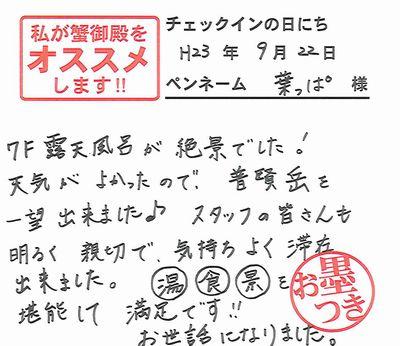 私が蟹御殿を
オススメ
します!!
チェックインの日にち
H23 年 9月 22日
ペンネーム 葉っぱ 様
7F 露天風呂が 絶景でした!
天気が よかったので、普賢岳を
一望 出来ました♪ スタッフの皆さんも
明るく 親切で、気持ち よく 滞在
出来ました。 湯 食 景 を
堪能して 満足です!!
お世話になりました。
お墨つき